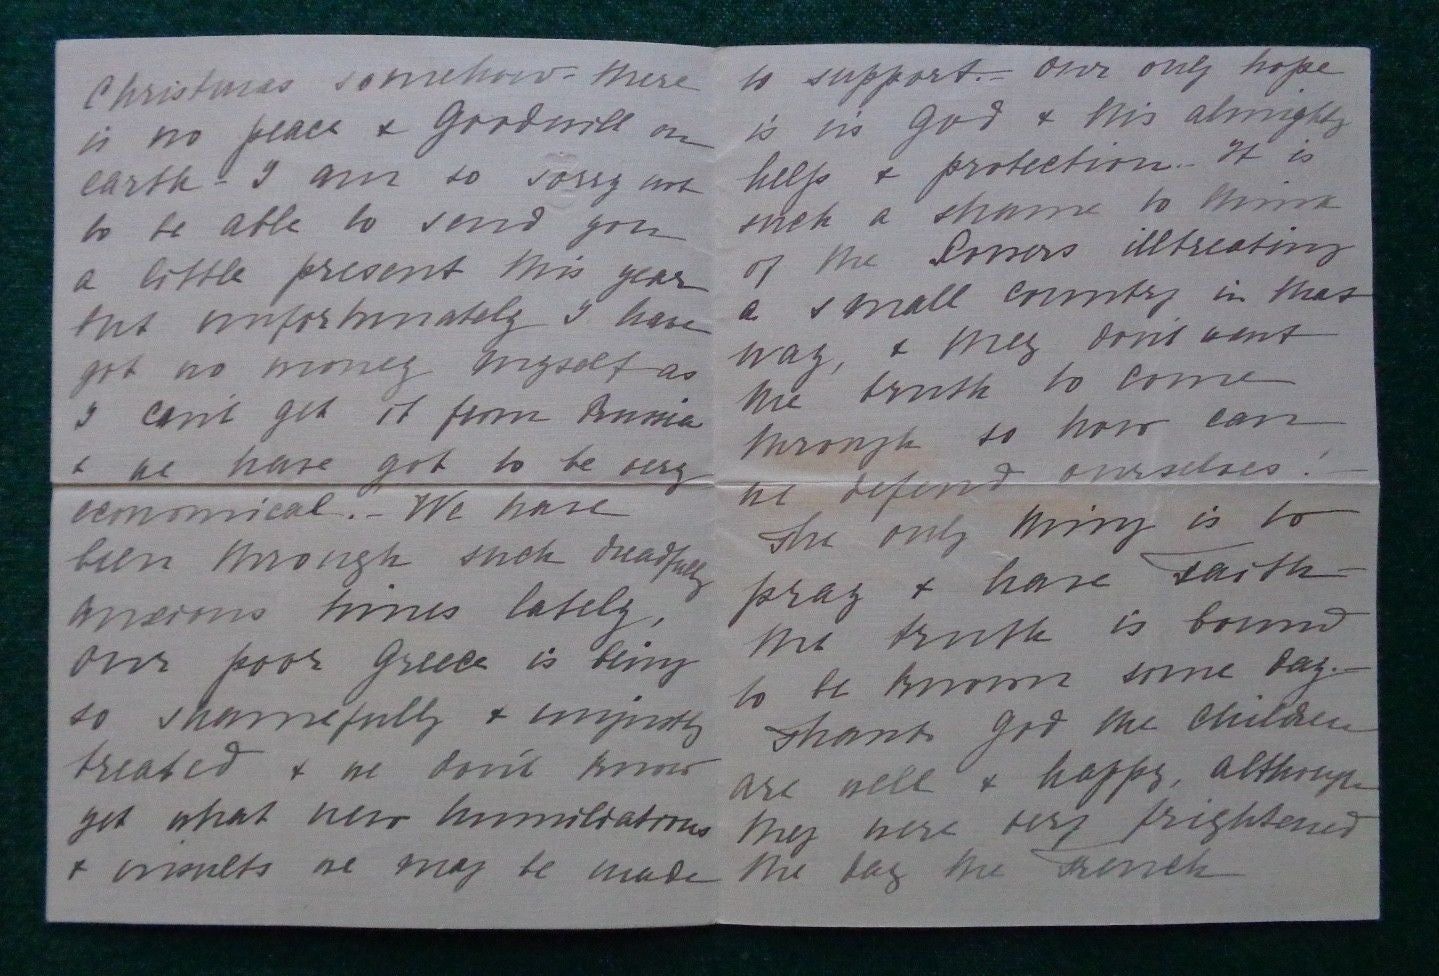 Christmas somehow - there
is no peace & Goodwill on
earth - I am so sorry not
to be able to send you
a little present this year
but unfortunately I have
got no money myself as
I can't get it from Russia
& we have got to be very
economical. - We have
been through such dreadfully
anxious times lately,
our poor Greece is being
so shamefully & unjustly
treated & we don't know
yet what new humiliations
& insults we may be made
to support. - Our only hope
is in God & His almighty
help & protection - It is
such a shame to think
of the Powers illtreating
a small country in that
way, & they don't want
the truth to come
through so how can
we defend ourselves! -
The only thing is to
pray & have Faith -
the truth is bound
to be known some day. -
Thank God the children
are well & happy, although
they were very frightened
the day the French